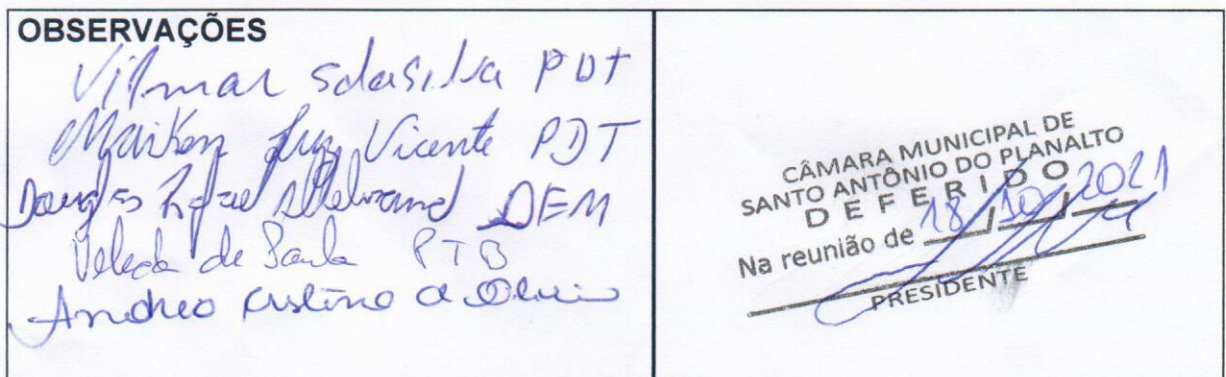 OBSERVAÇÕES
Vilmar SdaSilva PDT
Maiken Luiz Vicente PDT
Douglas Rafael DEM
Veleda de Paula PTB
Cristina de
CÂMARA MUNICIPAL DE
SANTO ANTÔNIO DO PLANALTO
DEFERIDO
Na reunião de 18/10/2021
PRESIDENTE